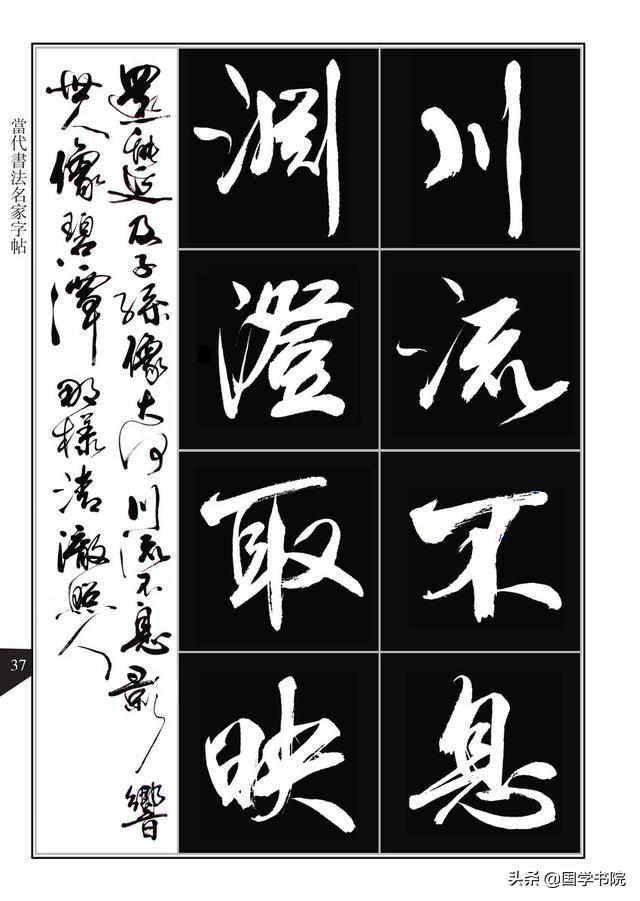 川流不息
渊澄取映
還能延及子孫像大河川流不息影響
世人像碧潭那樣清澈照人
當代書法名家字帖
37
头条 @国学书院